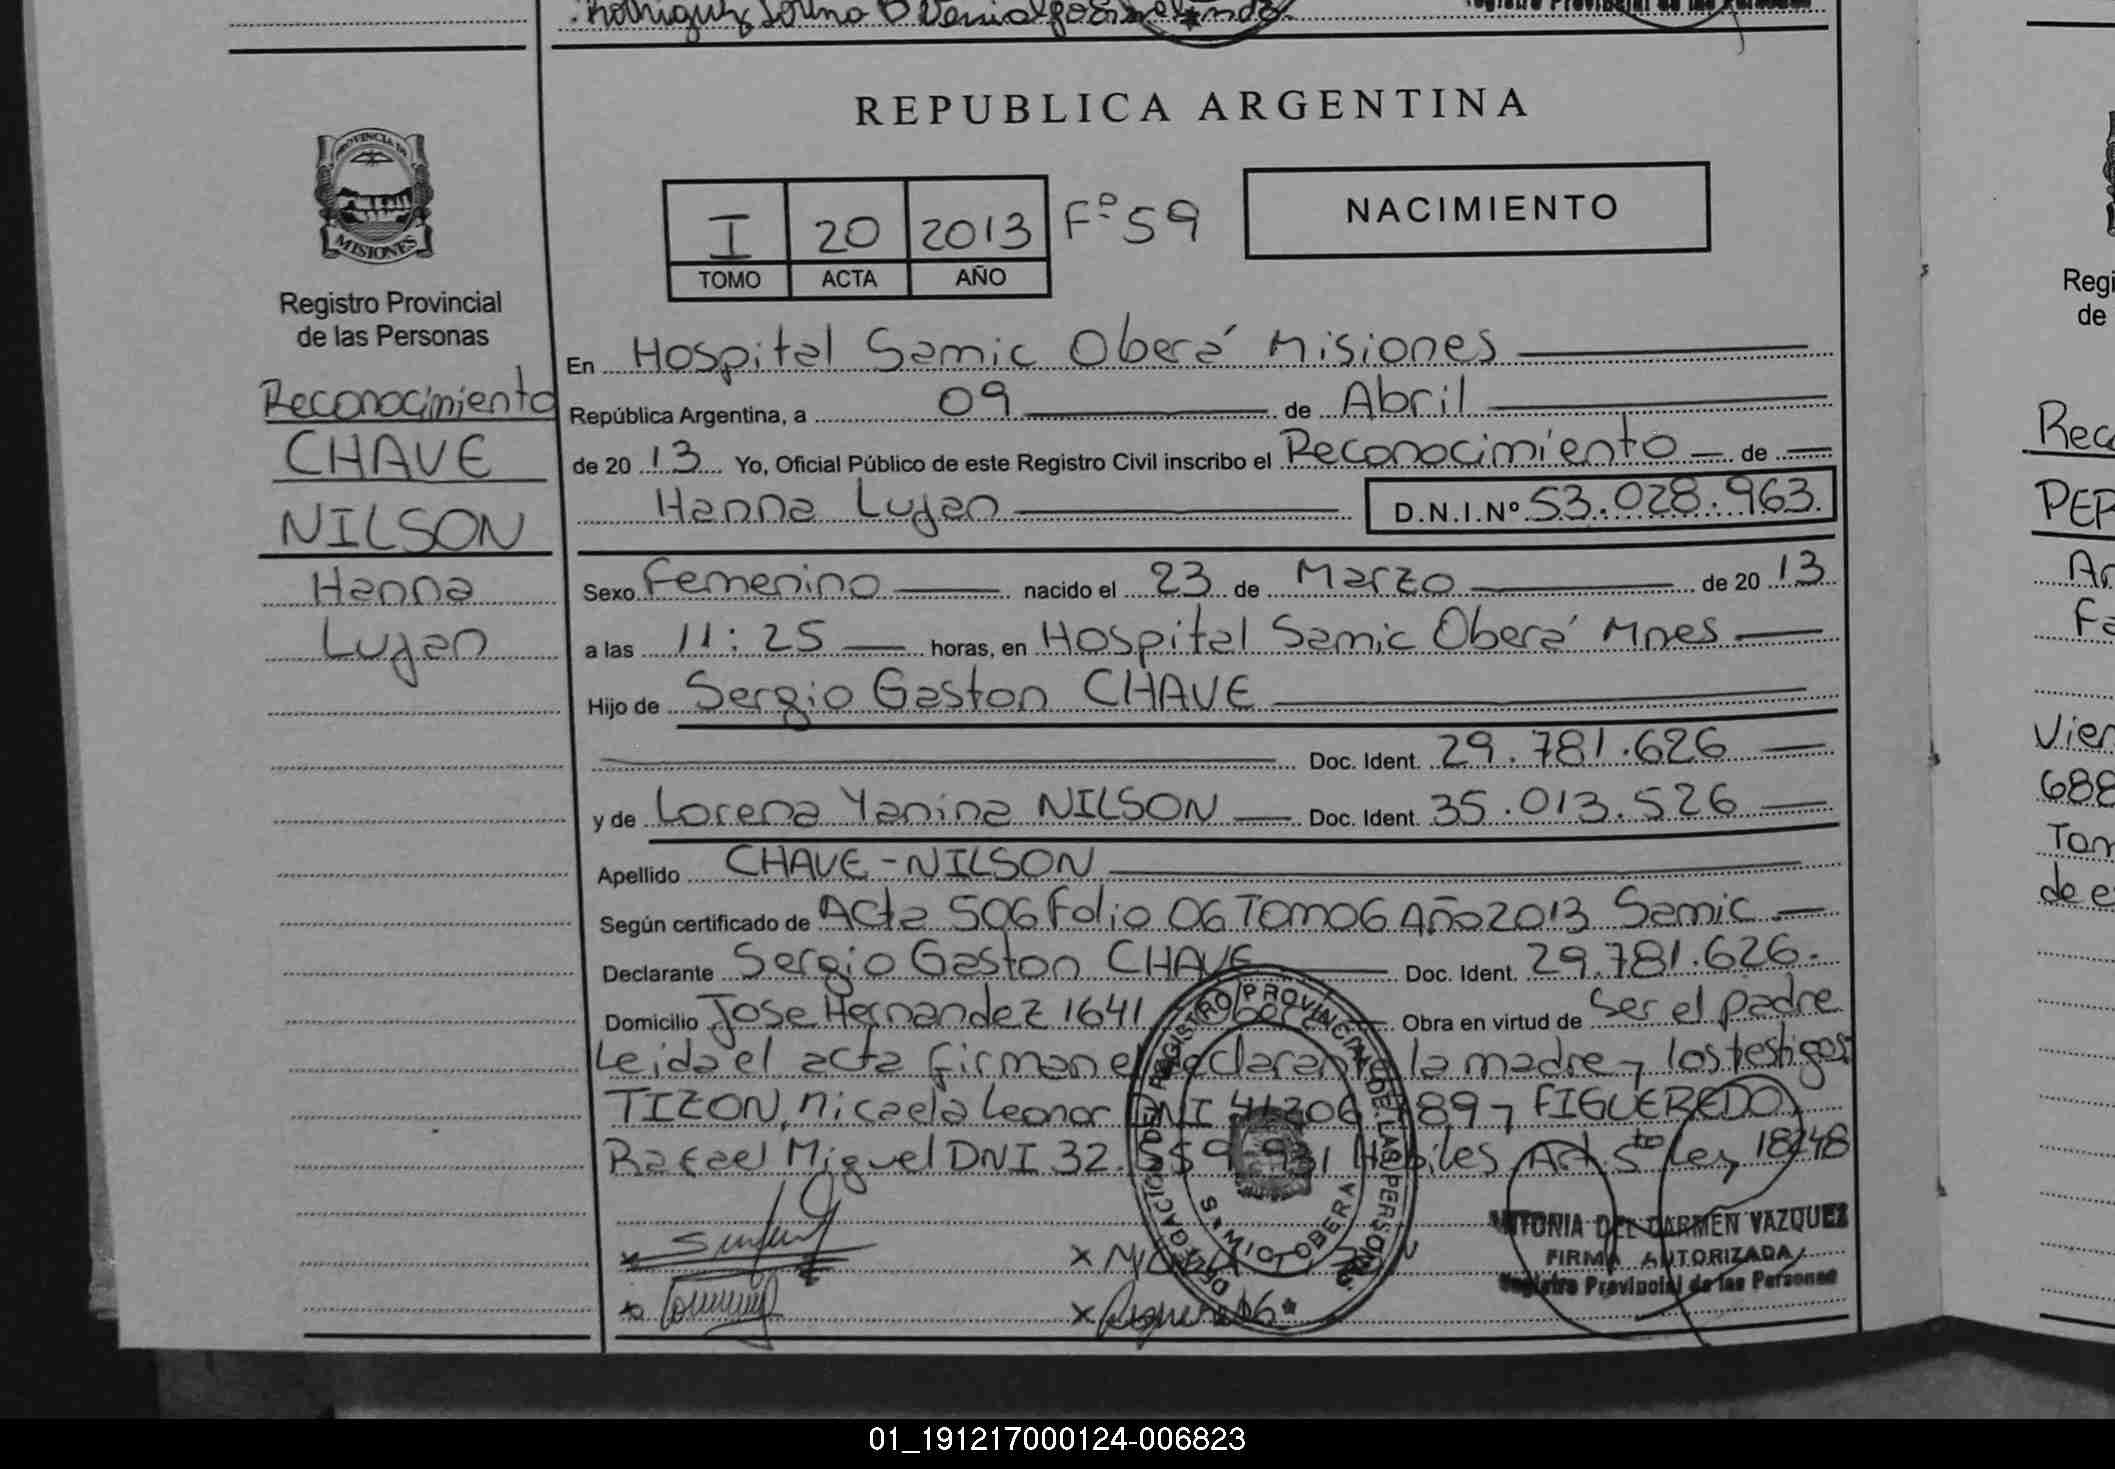 REPUBLICA ARGENTINA
PROVINCIA DE
MISIONES
Registro Provincial
de las Personas
Reconocimiento
CHAVE
NILSON
Hanna
Lujan
I 20 2013 Fº 59
TOMO ACTA AÑO
NACIMIENTO
En Hospital Samic Oberá Misiones
República Argentina, a 09 de Abril
de 20 13 Yo, Oficial Público de este Registro Civil inscribo el Reconocimiento de
Hanna Lujan D.N.I.Nº 53.028.963
Sexo Femenino nacido el 23 de Marzo de 20 13
a las 11:25 horas, en Hospital Samic Oberá Mnes
Hijo de Sergio Gaston CHAVE
Doc. Ident. 29.781.626
y de Lorena Yanina NILSON Doc. Ident. 35.013.526
Apellido CHAVE-NILSON
Según certificado de Acta 506 Folio 06 Tomo 6 Año 2013 Samic
Declarante Sergio Gaston CHAVE Doc. Ident. 29.781.626.
Domicilio Jose Hernandez 1641 Obera Obra en virtud de ser el padre
Leida el acta firman el declarante la madre y los testigos
TIZON, Micaela Leonor DNI y FIGUEREDO
Rafael Miguel DNI 32.559.931 Habiles Art 5to Ley 18248
DELEGACION DEL REGISTRO PROVINCIAL DE LAS PERSONAS
SAMIC I OBERA
VITORIA DEL CARMEN VAZQUEZ
FIRMA AUTORIZADA
Registro Provincial de las Personas
01_191217000124-006823